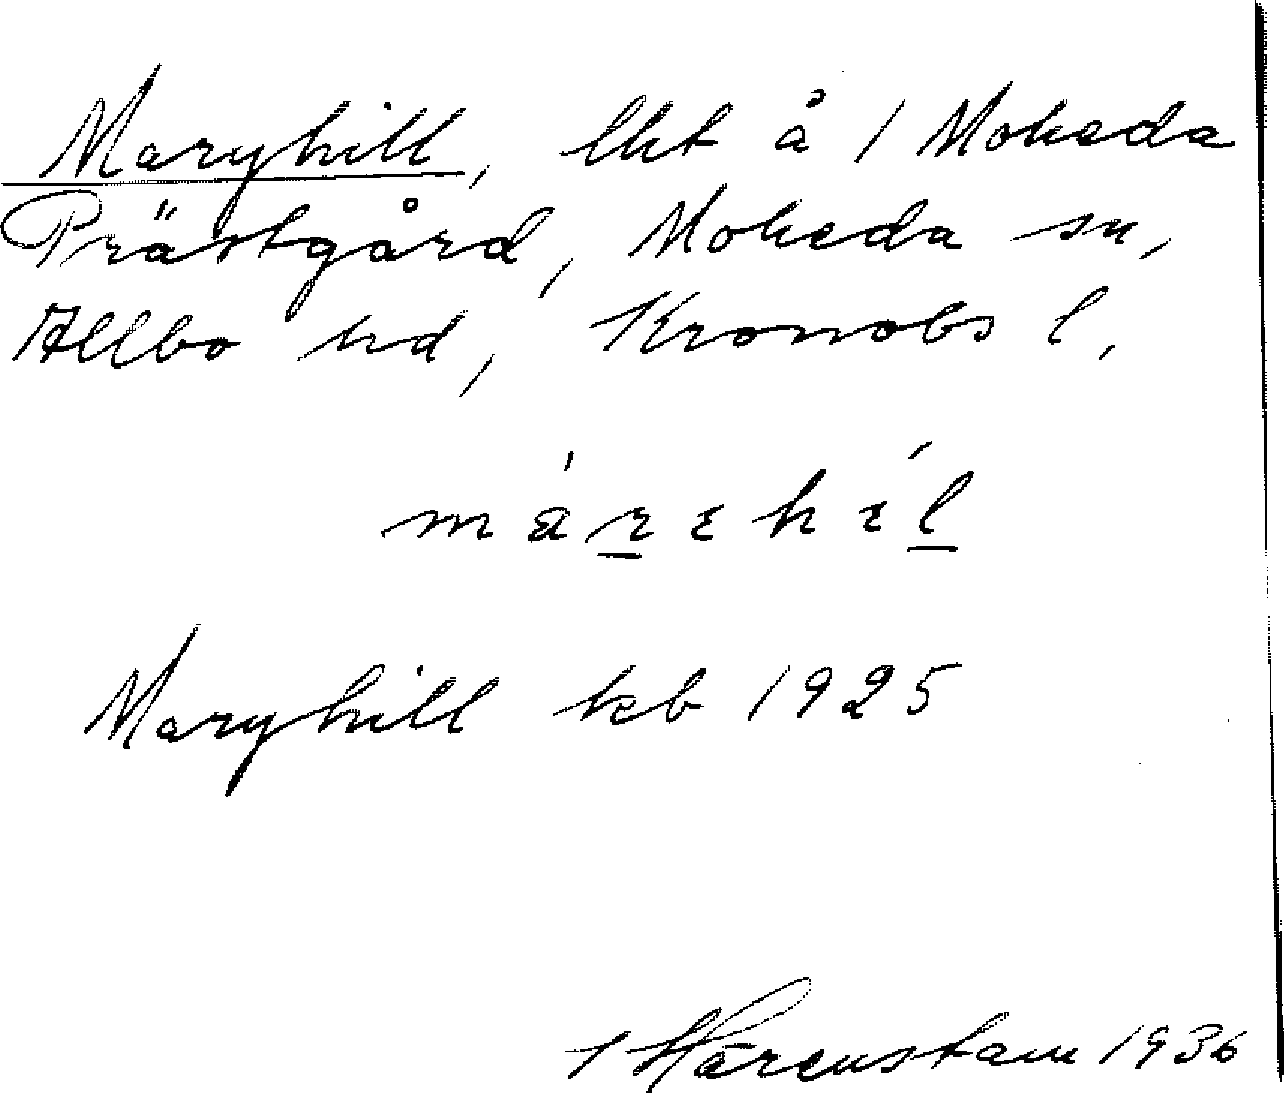 Maryhill, lht å 1 Moheda
Prästgård, Moheda sn,
Allbo hd, Kronobs l,
márehíl
Maryhill kb 1925
Härenstam 1936